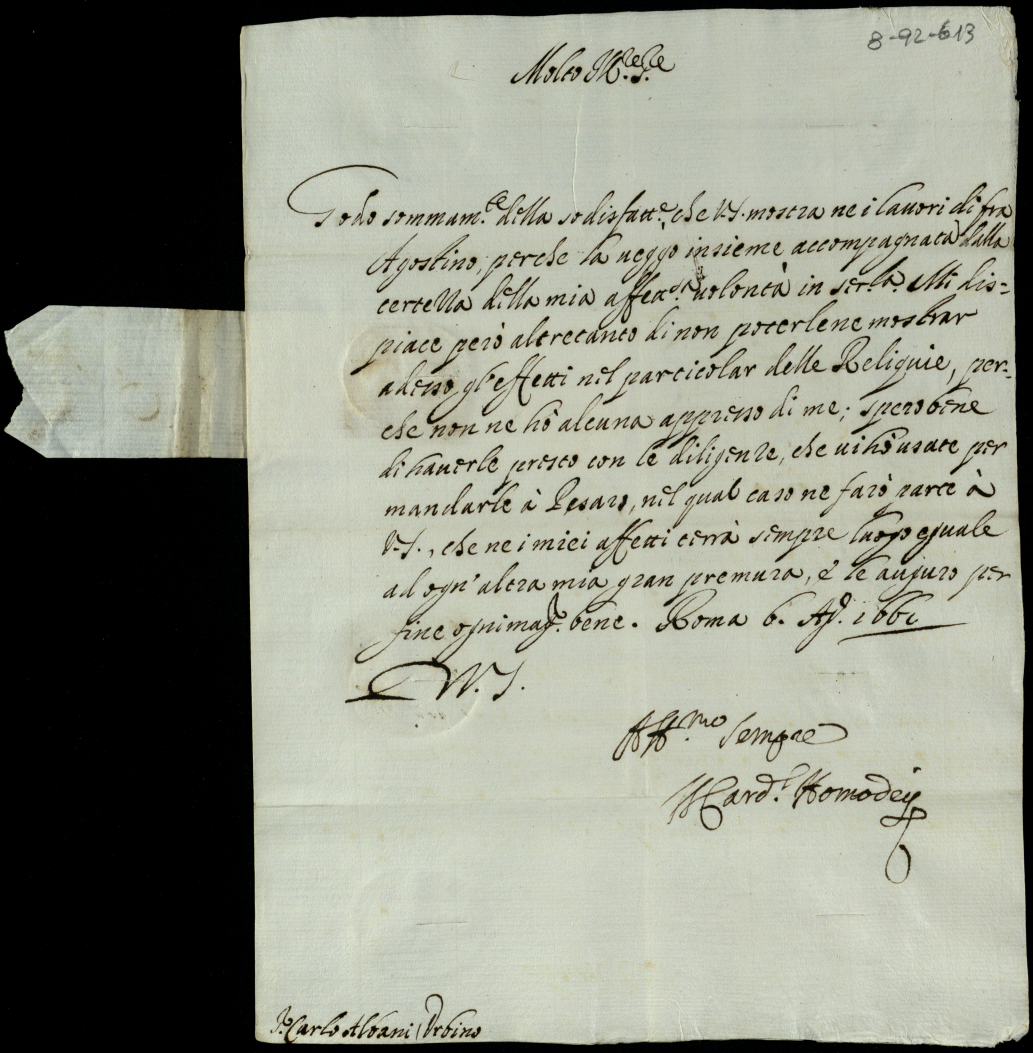 8-92-613
Molto Ill.re S.re
Godo sommam.te della sodisfatt.e che V.S. mostra ne i lauori di fra
Agostino, perche la ueggo insieme accompagnata dalla
certezza della mia affett.a uolontà in seru.la. Mi dis=
piace però altretanto di non poterlene mostrar
adesso gl'effetti nel particolar delle Reliquie, per=
che non ne hò alcuna appresso di me; spero bene
di hauerle presto con le diligenze, che ui hò usate per
mandarle à Pesaro, nel qual caso ne farò parte à
V.S., che ne i miei affetti terrà sempre luogo eguale
ad ogn'altra mia gran premura, e le auguro per
fine ogni magg.r bene. Roma 6. Ag.o 1661
D V.S.
Aff.mo sempre
Il Card.l Homodei
S.r Carlo Albani / Urbino